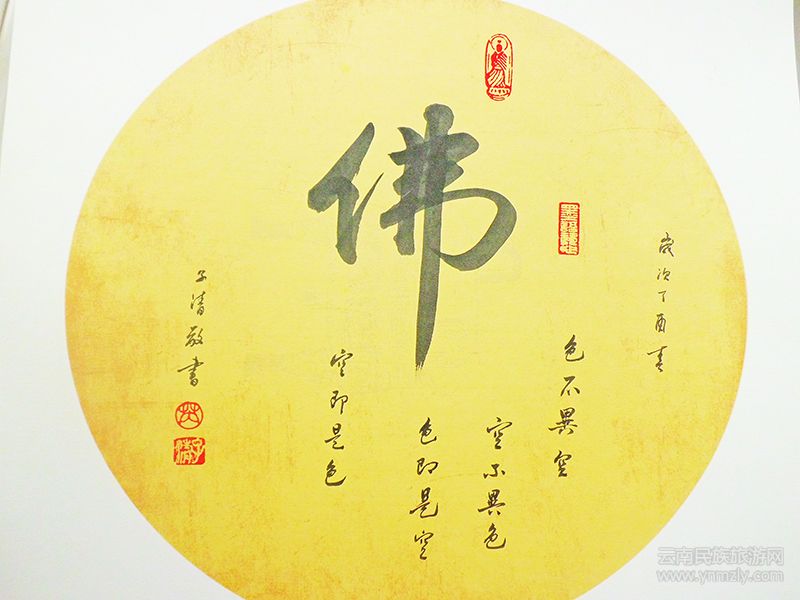 佛
歲次丁酉春
色不異空
空不異色
色即是空
空即是色
子清敬書
子清
云南民族旅游网
www.ynmzly.com